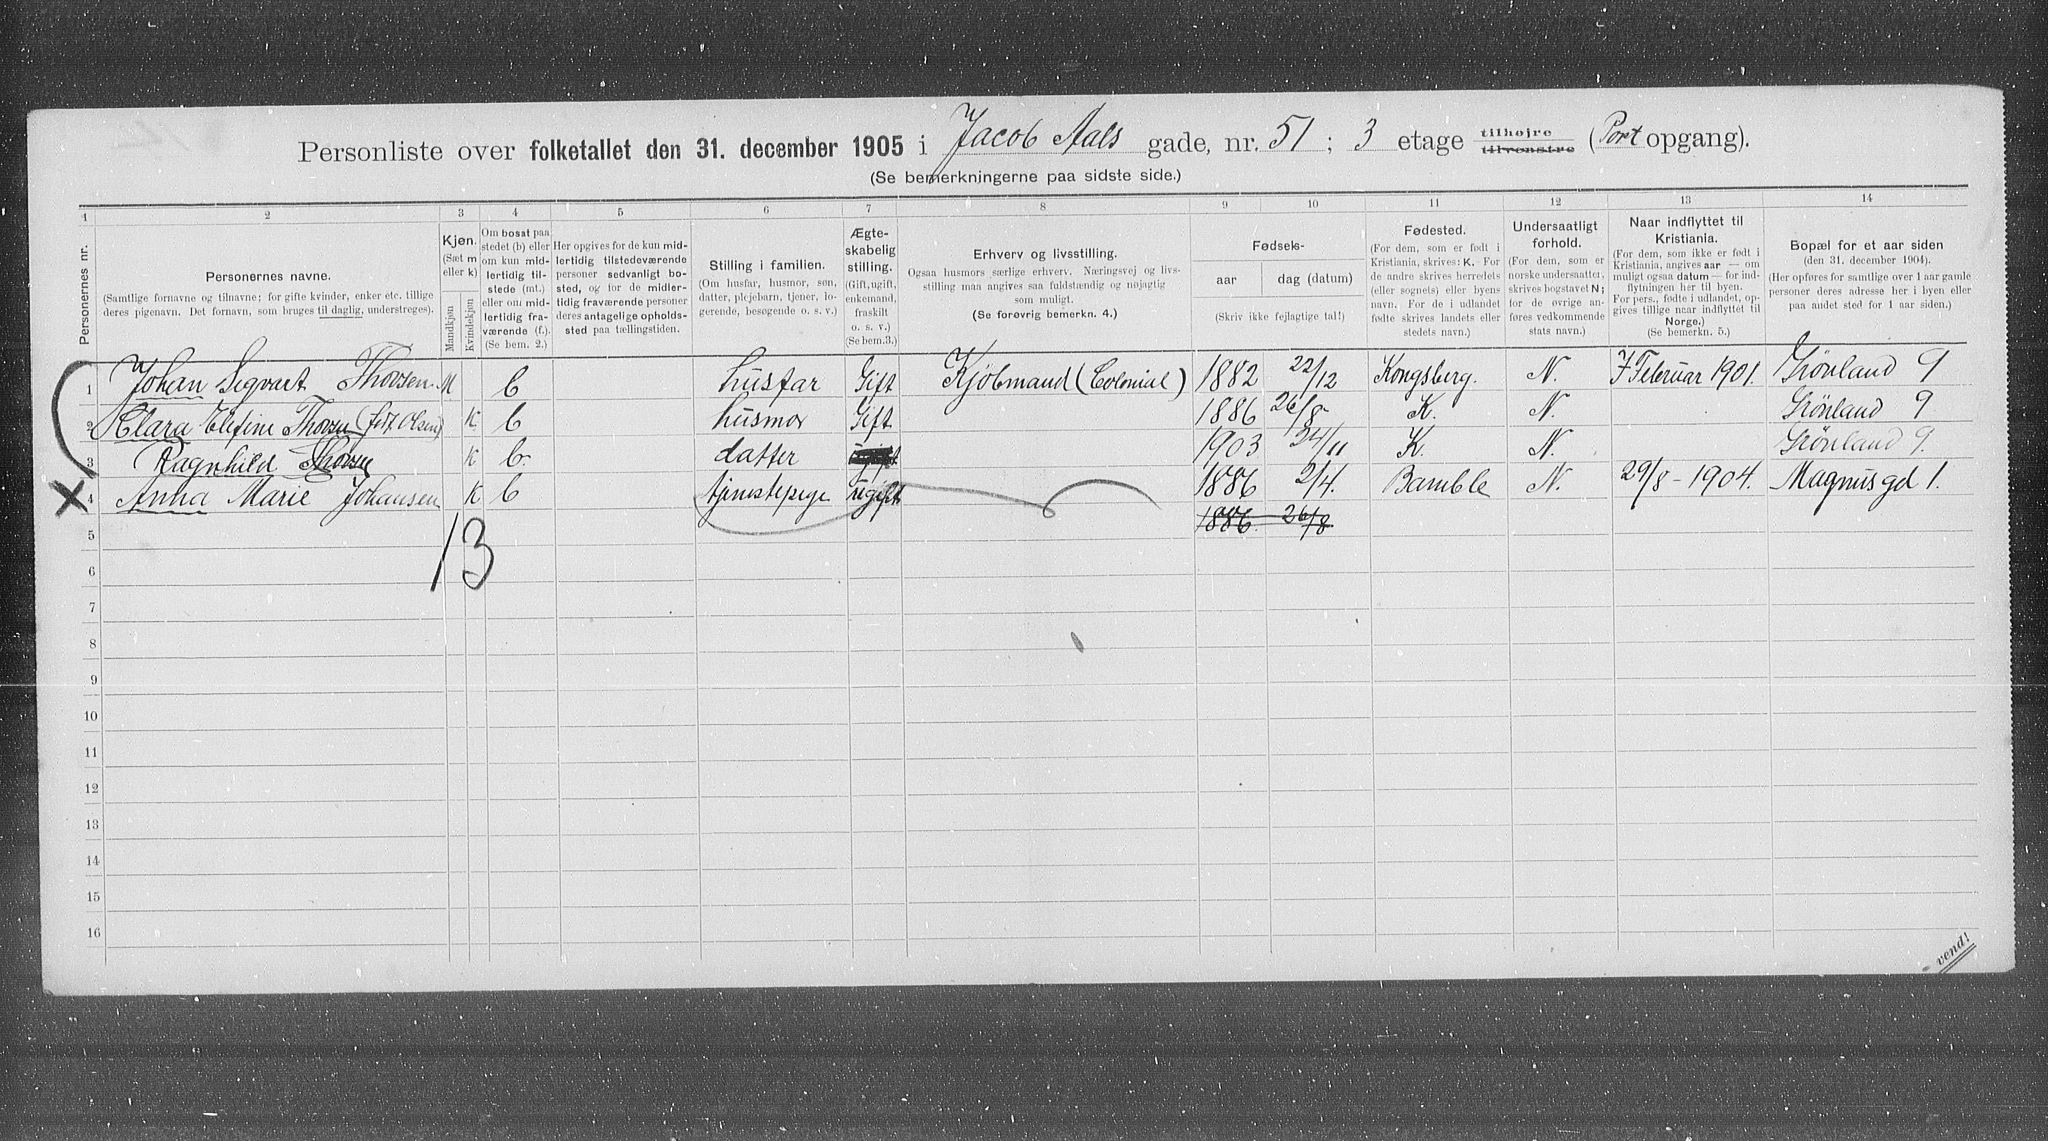 Personliste over folketallet den 31. december 1905 i Jacob Aals gade, nr. 51 ; 3 etage tilhøjre tilvenstre (Port opgang).
(Se bemerkningerne paa sidste side.)
1 2 3 4 5 6 7 8 9 10 11 12 13 14
Personernes nr.
Personernes navne.
(Samtlige fornavne og tilnavne; for gifte kvinder, enker etc. tillige
deres pigenavn. Det fornavn, som bruges til daglig, understreges).
Kjøn.
(Sæt m
eller k)
Mandkjøn
Kvindekjøn
Om bosat paa
stedet (b) eller
om kun mid-
lertidig til-
stede (mt.)
eller om mid-
lertidig fra-
værende (f.).
(Se bem. 2.)
Her opgives for de kun mid-
lertidig tilstedeværende
personer sedvanlig bo-
sted, og for de midler-
tidig fraværende personer
deres antagelige opholds-
sted paa tællingstiden.
Stilling i familien.
(Om husfar, husmor, søn,
datter, plejebarn, tjener, lo-
gerende, besøgende o. s. v.)
Ægte-
skabelig
stilling.
(Gift, ugift,
enkemand,
fraskilt
o. s. v.)
(Se bem.3.)
Erhverv og livsstilling.
Ogsaa husmors særlige erhverv. Næringsvej og livs-
stilling maa angives saa fuldstændig og nøjagtig
som muligt.
(Se forøvrig bemerkn. 4.)
Fødsels-
aar dag (datum)
(Skriv ikke fejlagtige tal!)
Fødested.
(For dem, som er født i
Kristiania, skrives: K. For
de andre skrives herredets
(eller sognets) eller byens
navn. For de i udlandet
fødte skrives landets eller
stedets navn.)
Undersaatligt
forhold.
(For dem, som er
norske undersaatter,
skrives bogstavet N;
for de øvrige an-
føres vedkommende
stats navn.)
Naar indflyttet til
Kristiania.
(For dem, som ikke er født i
Kristiania, angives aar — om
muligt ogsaa datum — for ind-
flytningen her til byen.
For pers., fødte i udlandet, op-
gives tillige naar indflyttet til
Norge.)
(Se bemerkn. 5.)
Bopæl for et aar siden
(den 31. december 1904).
(Her opføres for samtlige over 1 aar gamle
personer deres adresse her i byen eller
paa andet sted for 1 aar siden.)
1 Johan Segvart Thovsen M b husfar Gift Kjöbmand (Colonial) 1882 22/12 Kongsberg. N. 7 Februar 1901. Grönland 9
2 Klara Elefine Thovsen (født Olsen) K b husmor Gift 1886 26/8 K. N. Grönland 9
3 Ragnhild Thovsen K b. datter 1903 24/11 K. N. Grönland 9.
4 Anna Marie Johansen K b tjenestepige ugift 1886 2/4. Bamble N. 29/8 - 1904. Magnusgd 1.
5 1886. 26/8
13
6
7
8
9
10
11
12
13
14
15
16
vend!